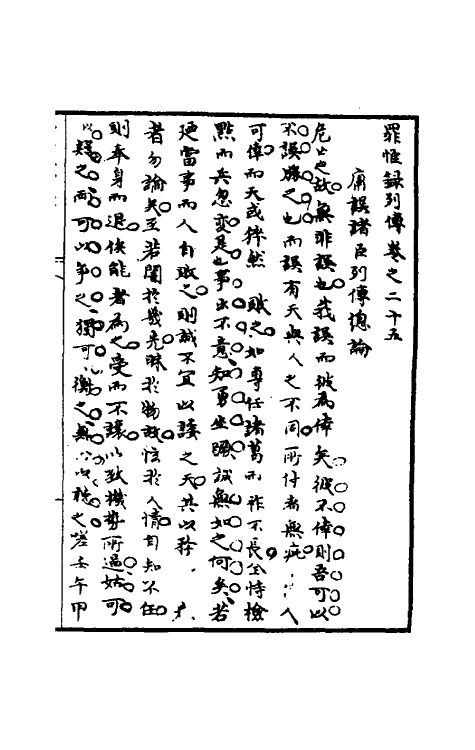 罪惟錄列傳卷之二十五
庸誤諸臣列傳總論
危亡之故無非誤也我誤而彼為倖矣彼不倖則吾可以
不誤勝之也而誤有天與人之不同所付者無疵人
可倖而天或猝然敗之如專任諸葛而祚不長全恃檢
點而兵忽變是也事出不意知勇坐隳誠無如之何矣若
廼當事而人自敗之則誠不宜以諉之天共以幹
者勿論矣至若闇於幾先昧於物故怯於人情自知不任
則奉身而退俟能者為之受而不讓以致機勢所過姑可
以疑之而可以爭之獨可以衡之無以應之嗟壬午甲